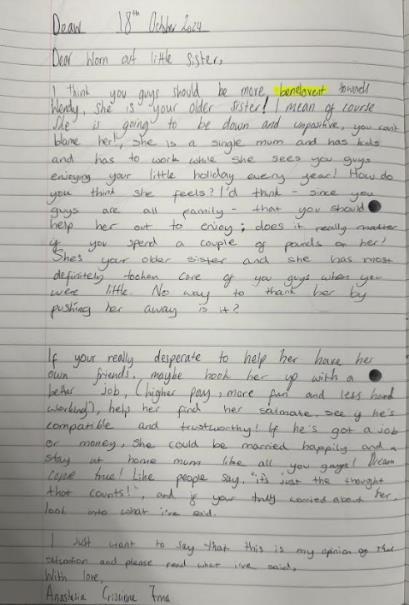 Dear 18th October 2024
Dear Worn out little sister,
I think you guys should be more benelovent towards
Wendy, she is your older sister! I mean of course
she is going to be down and unpositive, you can't
blame her!, she is a single mum and has kids
and has to work while she sees you guys
enjoying your little holiday every year! How do
you think she feels? I'd think - since you
guys are all family - that you should
help her out to enjoy; does it really matter
if you spend a couple of pounds on her!
She's your older sister and she has most
definitely tocken care of you guys when you
were little. No way to thank her by
pushing her away is it?
If your really desperate to help her have her
own friends, maybe hook her up with a
better job, (higher pay, more fun and less hard
working!), help her find her salmate, see if he's
compatible and trustworthy! If he's got a job
or money, she could be married happily and a
stay at home mum like all you guys! Dream
come true! Like people say, "it's just the thought
that counts!", and if your truly worried about her,
look into what i've said.
I Just want to say that this is my opinion of the
situation and please read what i've said,
With love,
Anastasia